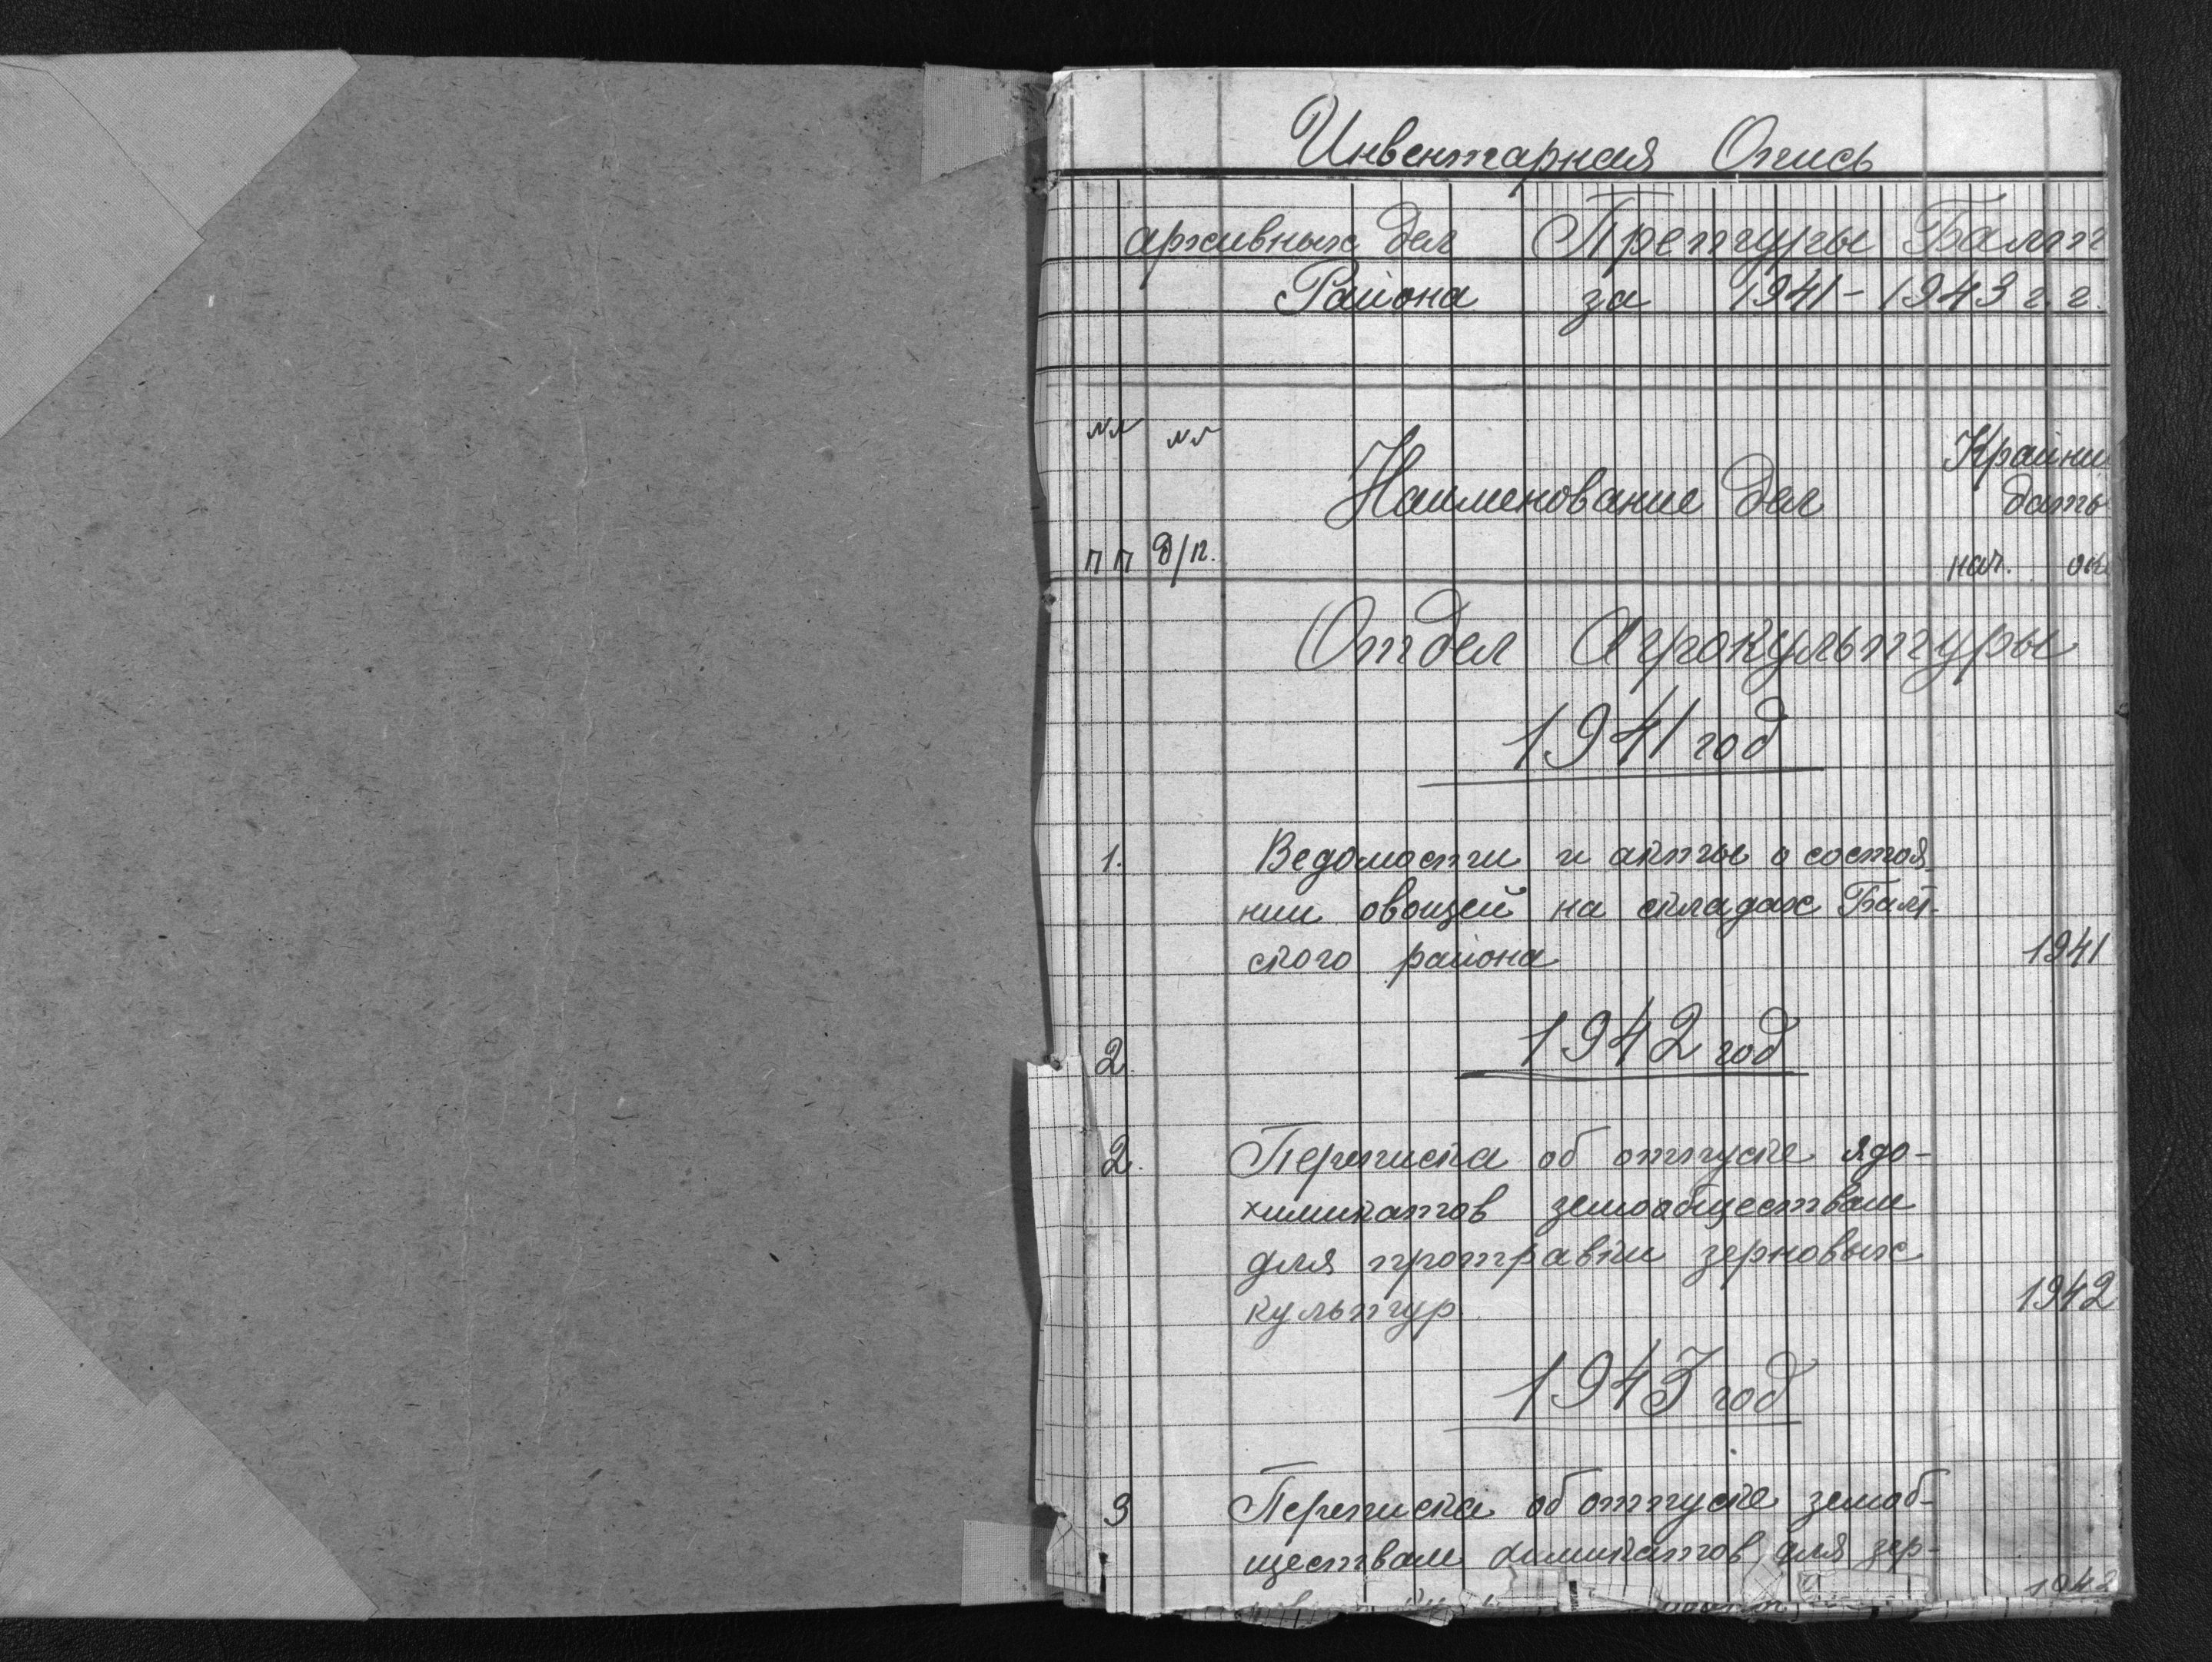 Инвентарная Опись
архивных дел Претуры Балт
Района за 1941-1943 г. г.
№№ №№ Наименование дел Крайни
даты
пп д/п. нач. ок
Отдел Агрокультуры
1941 год
1. Ведомости и акты о состоя
нии овощей на складах Балт-
ского района 1941
1942 год
2.
2. Переписка об отпуске ядо-
химикатов земообществам
для протравки зерновых
культур. 1942
1943 год
3 Переписка об отпуске земоб-
ществам химикатов для зер-